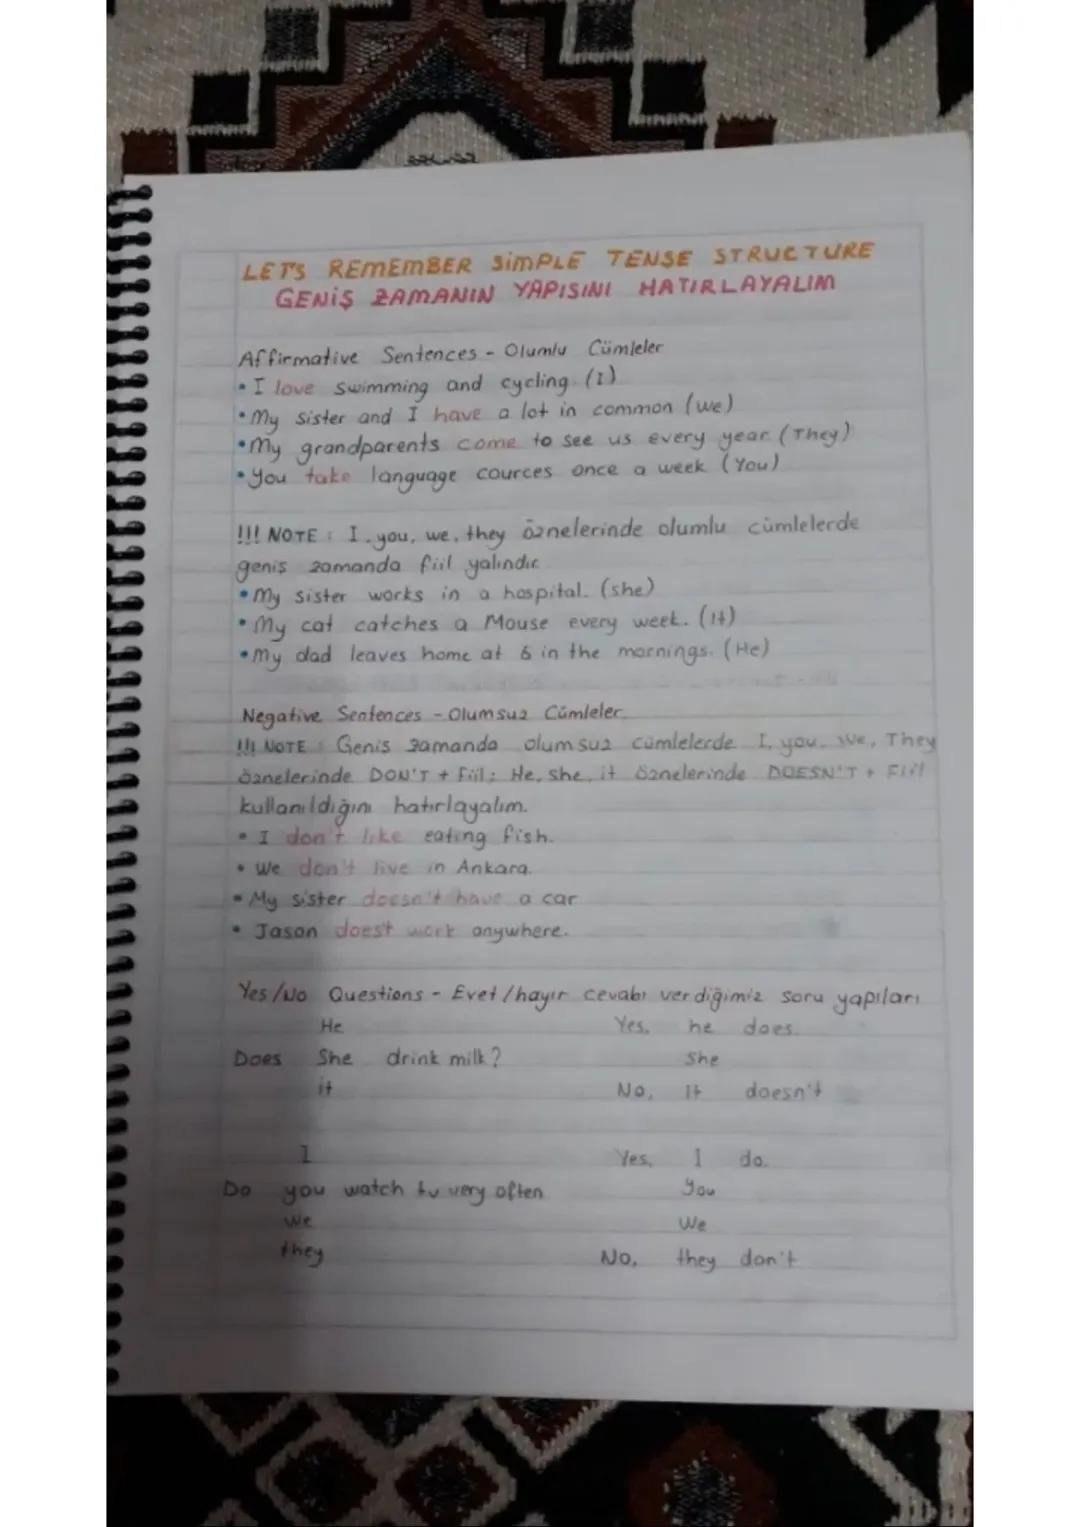 LET'S REMEMBER SiMPLE TENSE STRUCTURE
GENiŞ ZAMANIN YAPISINI HATIRLAYALIM
Affirmative Sentences - Olumlu Cümleler
• I love swimming and cycling. (I)
• My sister and I have a lot in common (we)
• My grandparents come to see us every year. (They)
• You take language cources once a week (You)
!!! NOTE : I, you, we, they öznelerinde olumlu cümlelerde
geniş zamanda fiil yalındır.
• My sister works in a hospital. (she)
• My cat catches a Mouse every week. (It)
• My dad leaves home at 6 in the mornings. (He)
Negative Sentences - Olumsuz Cümleler
!!! NOTE : Geniş zamanda olumsuz cümlelerde I, you, We, They
öznelerinde DON'T + Fiil; He, she, it öznelerinde DOESN'T + Fiil
kullanıldığını hatırlayalım.
• I don't like eating fish.
• We don't live in Ankara.
• My sister doesn't have a car
• Jason does't work anywhere.
Yes/No Questions - Evet/hayır cevabı verdiğimiz soru yapıları
He Yes, he does.
Does She drink milk? She
it No, it doesn't
I Yes, I do.
Do you watch tv very often You
we We
they No, they don't